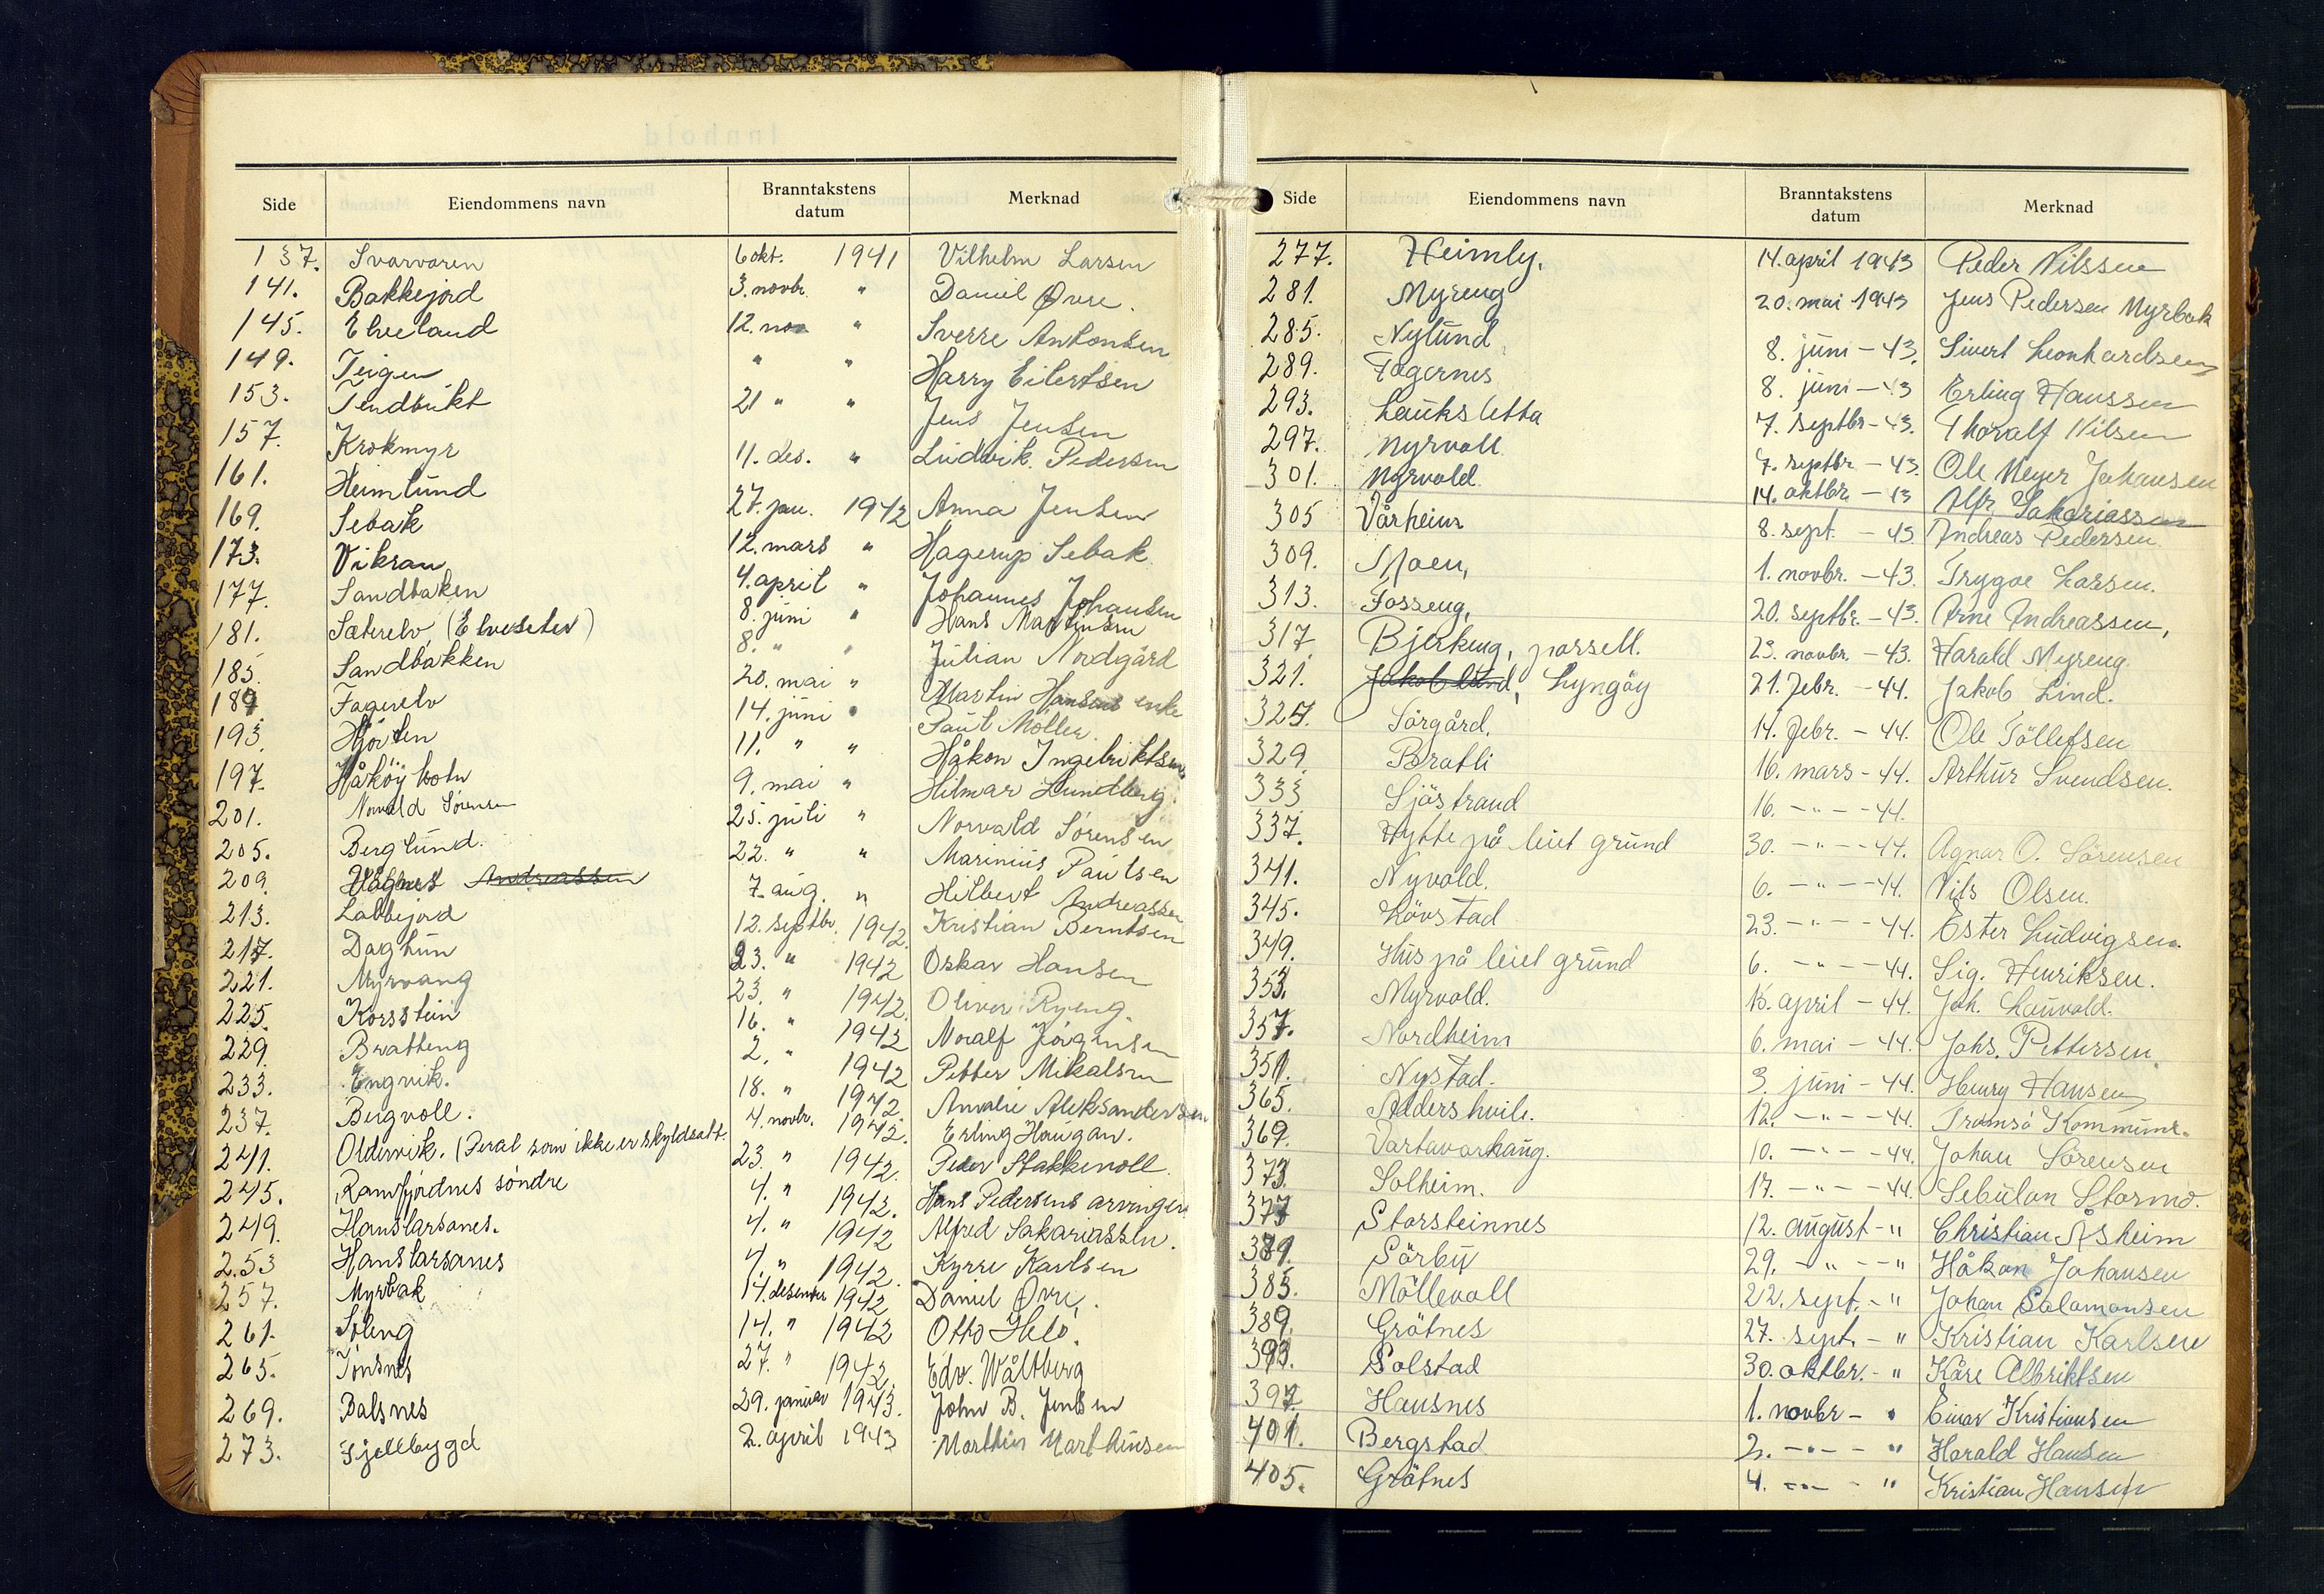 Side Eiendommens navn Branntakstens datum Merknad
137. Svarvaren 6 okt. 1941 Vilhelm Larsen
141. Bakkejord 3. novbr. " Daniel Øvre.
145. Elveland 12. nov " Sverre Antonsen
149. Teigen " " Harry Eilertsen
153. Tendbukt 21 " " Jens Jensen
157. Krokmyr 11. des. " Ludvik Pedersen
161. Heimlund 27. jan. 1942 Anna Jensen
169. Sebak 12. mars " Hagerup Sebak
173. Vikran 4. april " Johannes Johansen
177. Sandbaken 8. juni " Hans Martinsen
181. Sæterelv (Elveseter) 8. " " Julian Nordgård
185. Sandbakken 20. mai " Martin Hansens enke
189 Fagerelv 14. juni " Paul Møller.
193. Hjorten 11. " " Håkon Ingebriktsen
197. Håkøybotn 9. mai " Hilmar Lundberg.
201. Norvald Sørensen 25. juli " Norvald Sørensen
205. Berglund. 22. " " Marinius Paulsen
209. Vågnes Andreassen 7. aug. " Hilbert Andreassen
213. Labbejord 12. septbr. 1942. Kristian Berntsen
217. Daghun 23. " 1942 Oskar Hansen
221. Myrvang 23. " 1942. Oliver Ryeng.
225. Korsstein 16. " 1942 Noralf Jörgensen
229. Bratteng 2. " 1942 Petter Mikalsen
233. Engvik. 18. " 1942. Amalie Aleksandersen
237. Bergvoll. 4. novbr. 1942. Erling Haugan.
241. Oldervik. (Feral som ikke er skyldsatt. 23. " 1942. Peder Stakkevoll.
245. Ramfjordnes søndre 4. " 1942. Hans Pedersens arvinger
249. Hanslarsanes. 4. " 1942 Alfred Sakariassen.
253 Hanslarsanes 4. " 1942. Kyrre Karlsen
257. Myrbak 14. desember 1942 Daniel Øvre.
261. Soleng 14. " 1942 Otto Helo.
265. Tonsnes 27. " 1942. Edv. Wåltberg
269. Balsnes 29. januar 1943. John B. Jensen
273. Fjellbygd 2. april 1943 Marthin Marthinsen
Side Eiendommens navn Branntakstens datum Merknad
277. Heimly. 14. april 1943 Peder Nilssen
281. Myreng 20. mai 1943 Jens Pedersen Myrbak
285. Nylund 8. juni - 43. Sivert Leonhardsen
289. Fagernes 8. juni - 43 Erling Hanssen
293. Laukslettа 7. septbr - 43. Thoralf Nilsen
297. Myrvoll 7. septbr - 43. Ole Meyer Johansen
301. Myrvold. 14. oktbr. - 43 Alfr. Sakariassen
305 Vårheim 8. sept. - 43. Andreas Pedersen.
309. Moen, 1. novbr. - 43. Trygve Larsen.
313. Fosseng, 20. septbr. - 43. Arne Andreassen,
317. Bjerkeng, parsell. 23. novbr. - 43. Harald Myreng.
321. Jakoblund, Lyngöy 21. febr. - 44. Jakob Lind.
325. Sörgård. 14. febr. - 44. Ole Tollefsen
329. Bratli 16. mars - 44. Arthur Svendsen.
333 Sjöstrand 16. - " - - 44.
337. Hytte på leiet grund 30. - " - - 44. Agnar O. Sörensen
341. Nyvold. 6. - " - - 44. Nils Olsen.
345. Lövstad 23. - " - - 44. Ester Ludvigsen.
349. Hus på leiet grund 6. - " - - 44. Sig. Henriksen.
353. Myrvold. 15. april - 44. Joh. Lauvold.
357. Nordheim 6. mai - 44. Johs. Pettersen.
361. Nystad. 3. juni - 44. Henry Hansen
365. Aldershvile. 12. - " - - 44. Tromsö Kommune.
369. Vartavarhaug. 10. - " - - 44. Johan Sörensen
373. Solheim. 17. - " - - 44. Sebulon Stormo.
377 Storsteinnes 12. august - " Christian Åsheim
381. Sörby 29. - " - - " Håkon Johansen
385. Möllevoll 22. sept. - " Johan Salamonsen
389. Grötnes 27. sept. - " Kristian Karlsen
393. Solstad 30. oktbr. - " Kåre Albriktsen
397. Hausnes 1. novbr - " Einar Kristiansen
401. Bergstad 2. - " - - " Harald Hansen
405. Grötnes 4. - " - - " Kristian Hansen